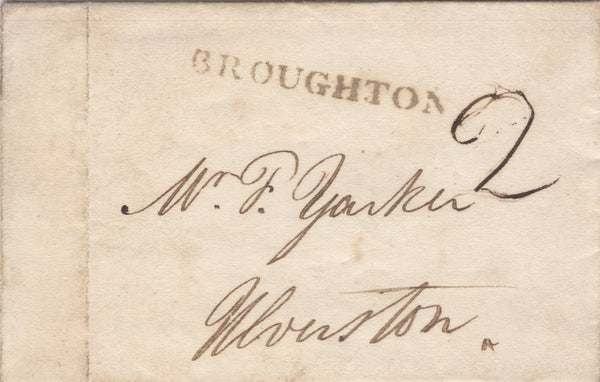 BROUGHTON
2
Mr. F. Yarker
Ulverston
A